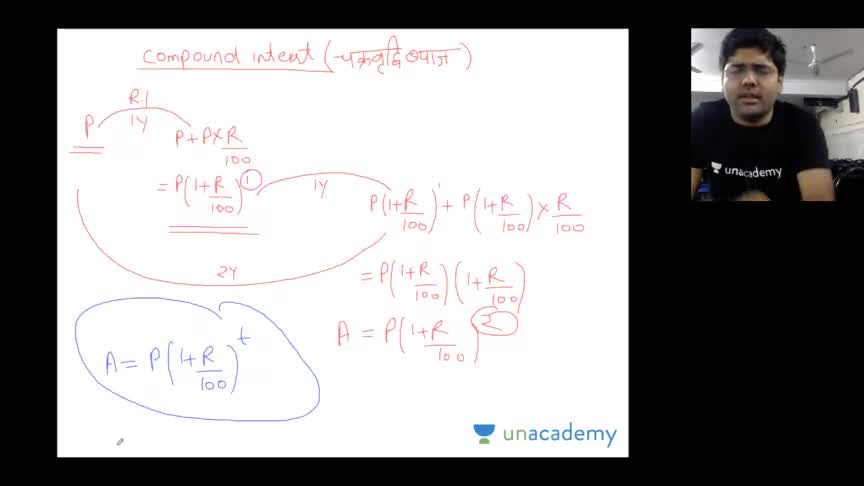 compound interest (चक्रवृद्धि ब्याज)
R.1
P 1Y P+P×R/100
= P(1+R/100)^1 1Y P(1+R/100)^1 + P(1+R/100) × R/100
2Y = P(1+R/100)(1+R/100)
A = P(1+R/100)^2
A = P(1+R/100)^t
unacademy
unacademy